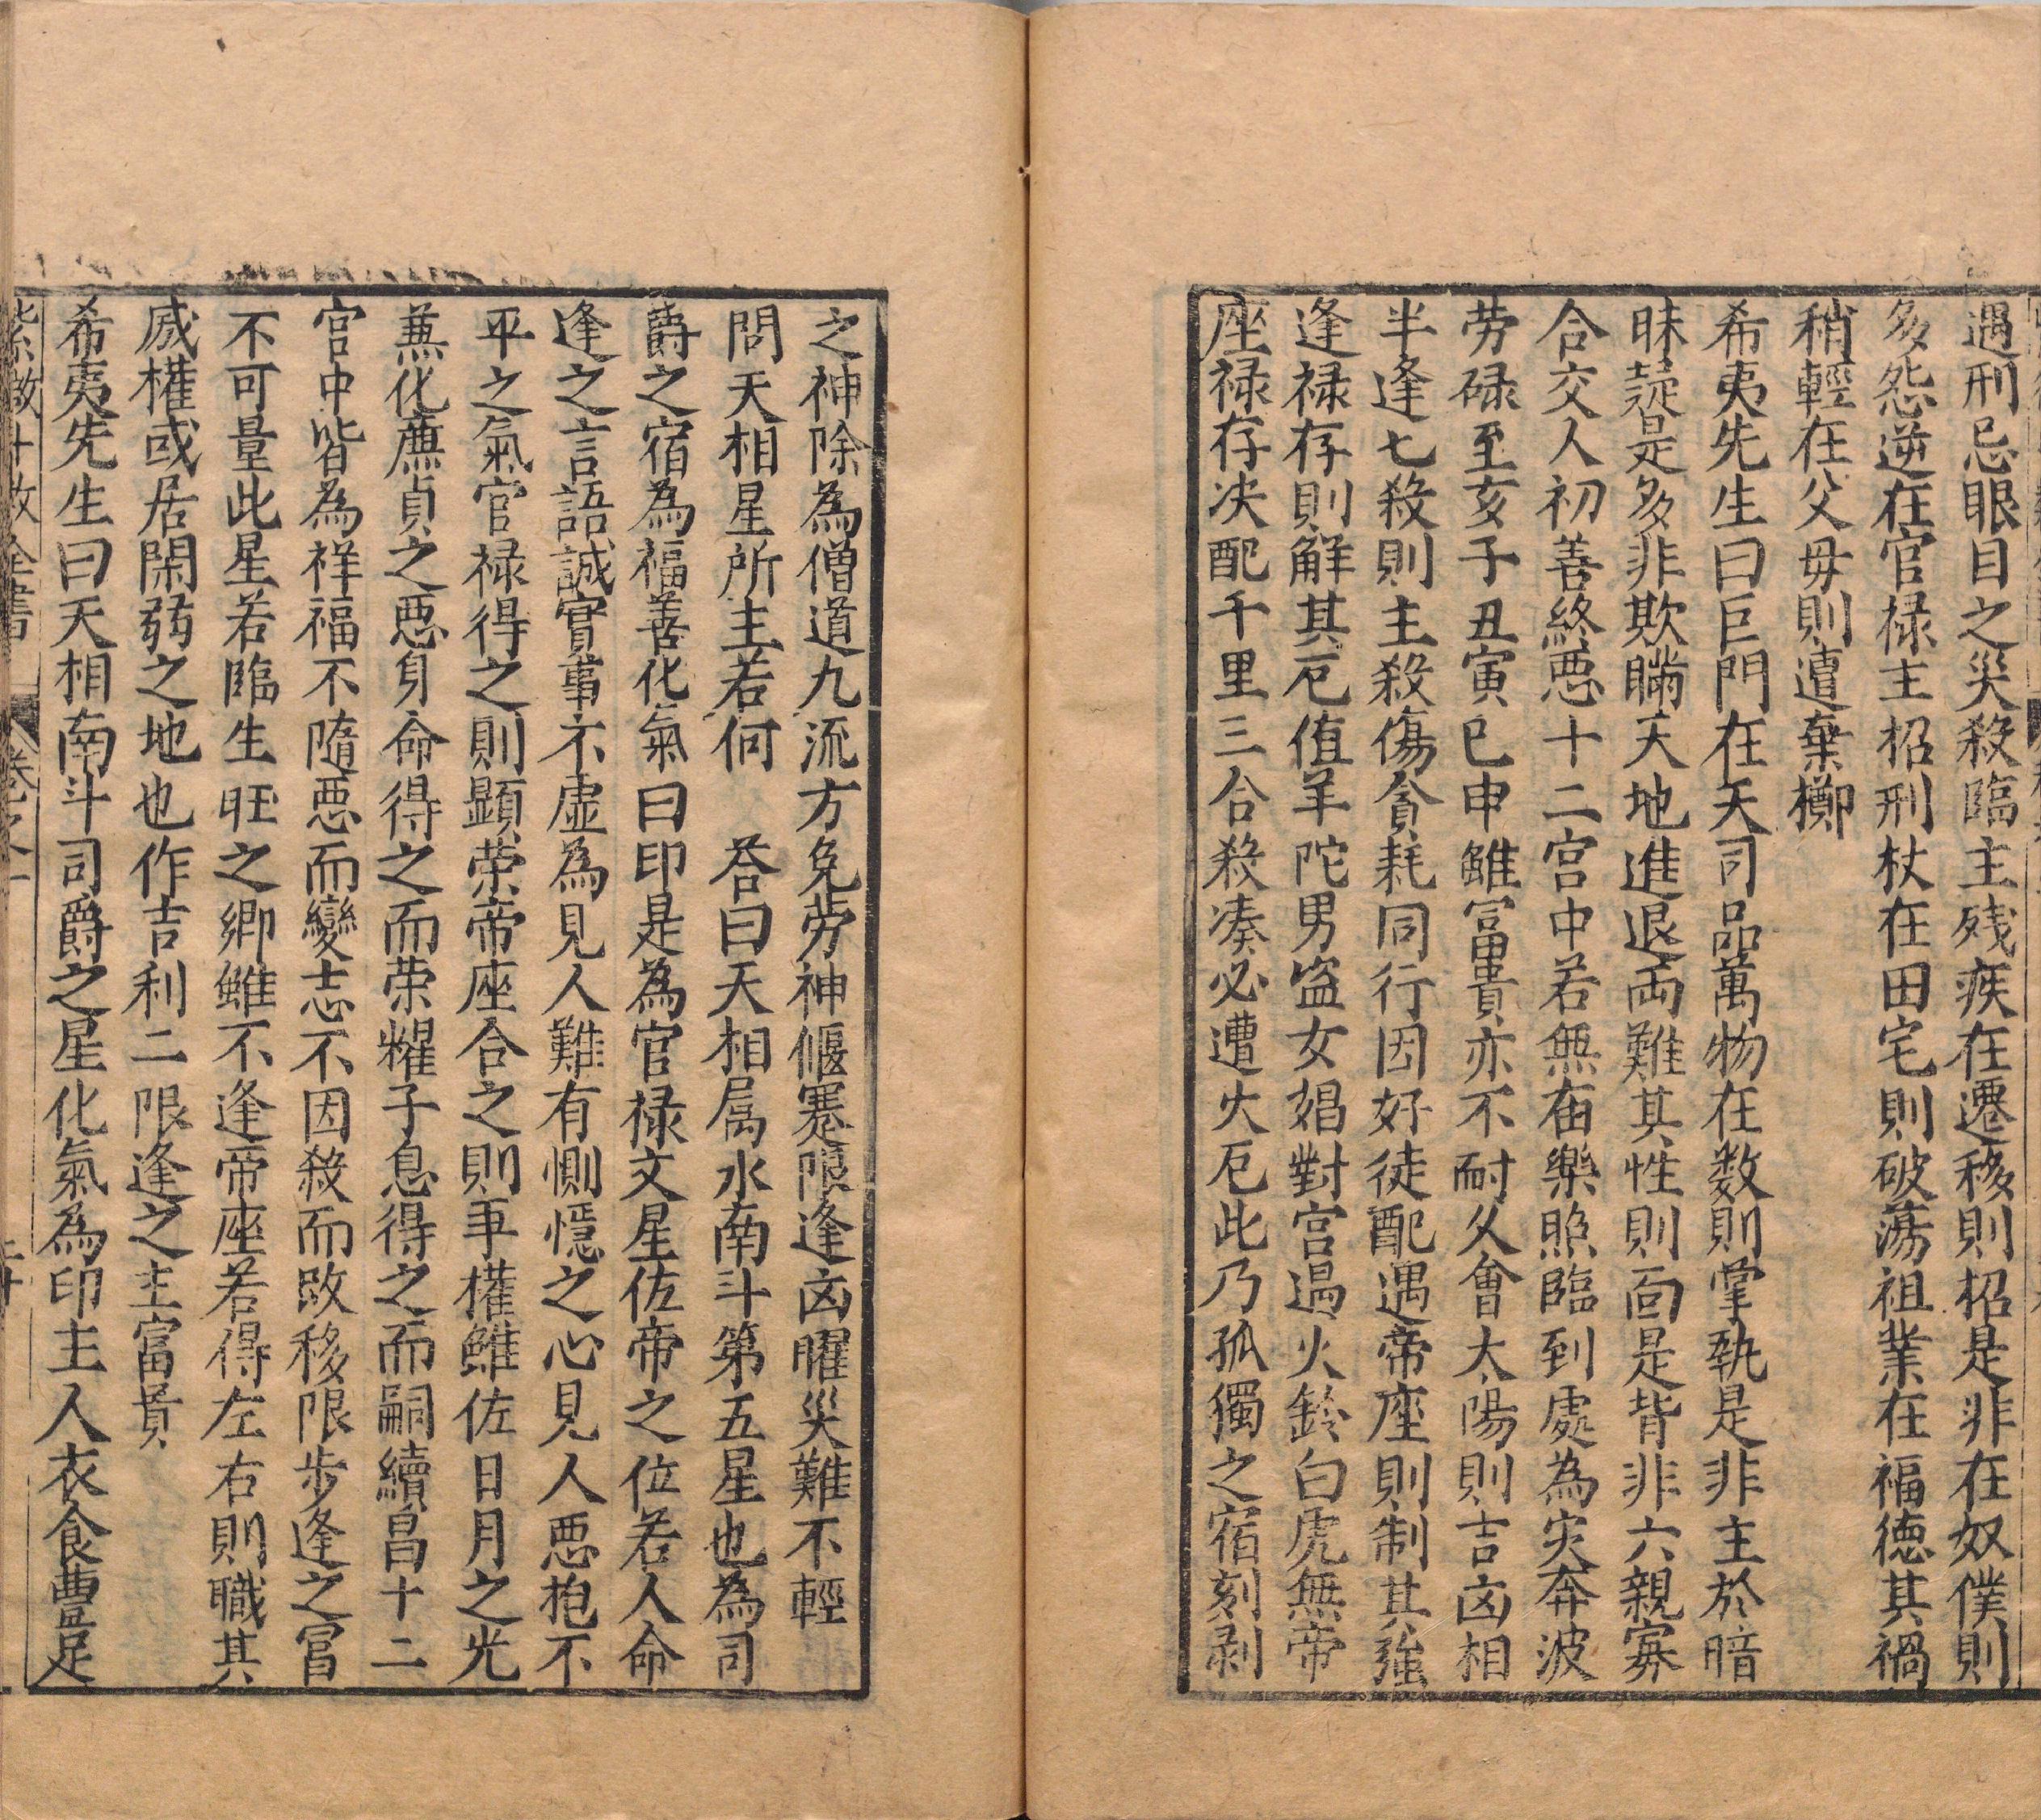 遇刑忌眼目之災殺臨主残疾在遷移則招是非在奴僕則
多怨逆在官禄主招刑杖在田宅則破蕩祖業在福徳其禍
稍輕在父母則遺棄擲
希夷先生曰巨門在天司品萬物在数則掌執是非主於暗
昧是多非欺瞞天地進退両難其性則面是背非六親寡
合交人初善終悪十二宮中若無庙樂照臨到處為灾奔波
劳碌至亥子丑寅巳申雖富貴亦不耐久會太陽則吉凶相
半逢七殺則主殺傷貪耗同行因好徒配遇帝座則制其強
逢禄存則解其厄值羊陀男盗女娼對宮遇火鈴白虎無帝
座禄存决配千里三合殺凑必遭火厄此乃孤獨之宿刻剥
之神除為僧道九流方免劳神偃蹇限逢凶曜災難不輕
問天相星所主若何　荅曰天相属水南斗第五星也為司
爵之宿為福善化氣曰印是為官禄文星佐帝之位若人命
逢之言語誠實事不虛為見人難有惻憶之心見人悪抱不
平之氣官禄得之則顕荣帝座合之則爭權雖佐日月之光
蕪化廉貞之悪身命得之而荣耀子息得之而嗣續昌十二
宮中皆為祥福不隨悪而變志不因殺而改移限步逢之冨
不可量此星若臨生旺之鄉雖不逢帝座若得左右則職其
威權或居閑弱之地也作吉利二限逢之主富貴
希夷先生曰天相南斗司爵之星化氣為印主人衣食豊足